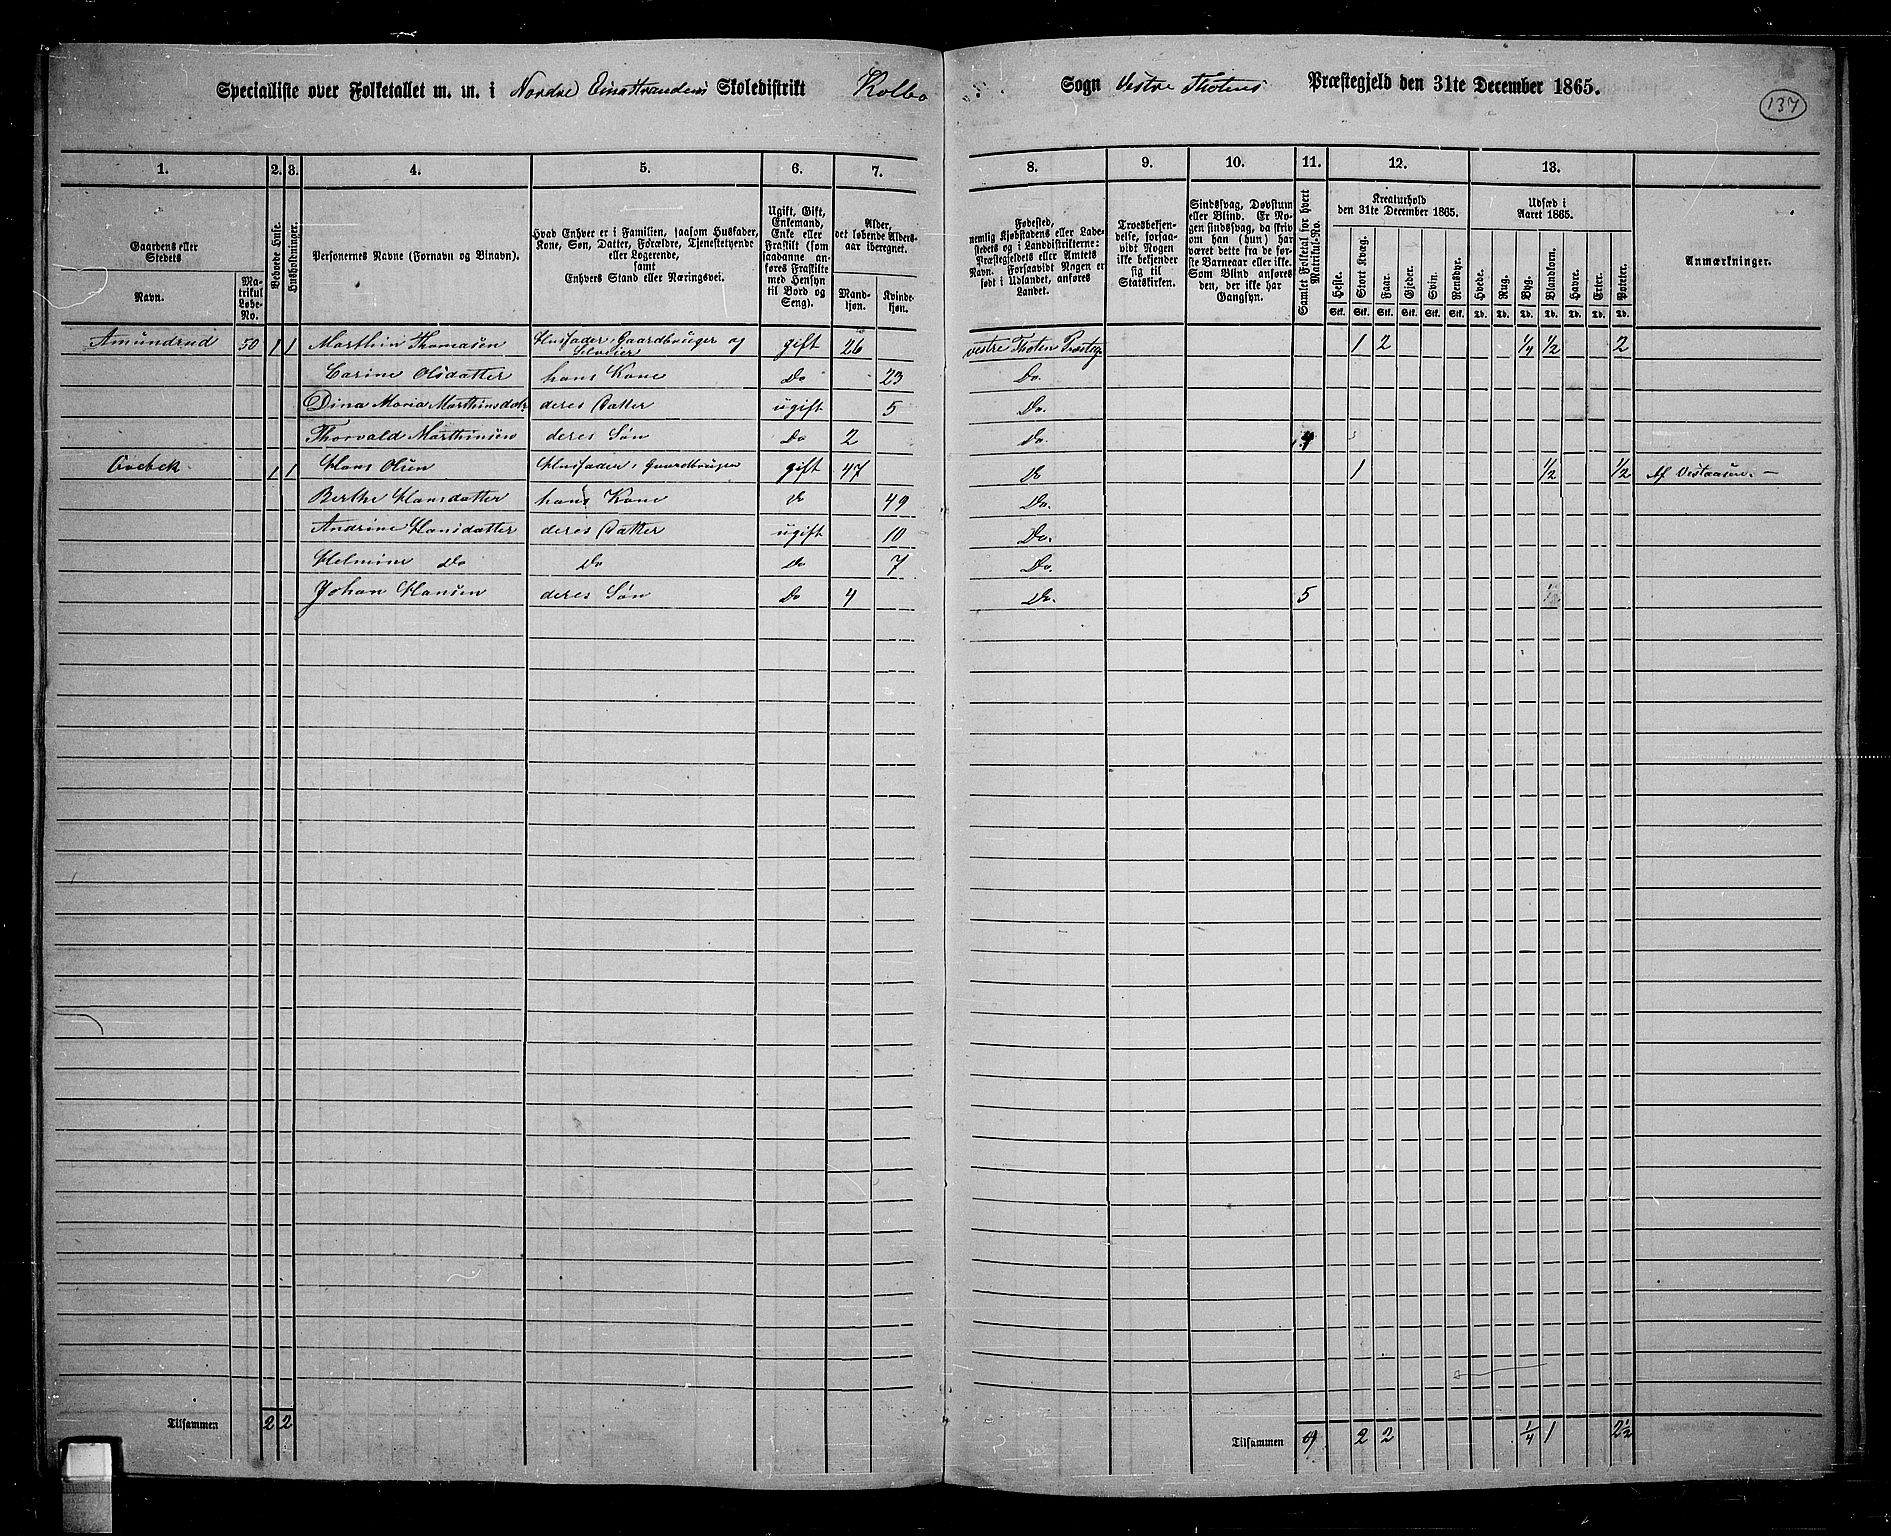 Specialliste over Folketallet m. m. i Nordre Einastrandens Skoledistrikt Kolbo Sogn Vestre Thotens Præstegjeld den 31te December 1865.
137
1. 2. 3. 4. 5. 6. 7. 8. 9. 10. 11. 12. 13.
Gaardens eller Stedets
Navn.
Matrikul Løbe-No.
Beboede Huse.
Husholdninger.
Personernes Navne (Fornavn og Binavn).
Hvad Enhver er i Familien, saasom Husfader,
Kone, Søn, Datter, Forældre, Tjenestetyende
eller Logerende,
samt
Enhvers Stand eller Næringsvei.
Ugift, Gift,
Enkemand,
Enke eller
Fraskilt (som
saadanne an-
føres Fraskilte
med Hensyn
til Bord og
Seng).
Alder,
det løbende Alders-
aar iberegnet.
Mand-
kjøn.
Kvinde-
kjøn.
Fødested,
nemlig Kjøbstadens eller Lade-
stedets og i Landdistrikterne:
Præstegjeldets eller Amtets
Navn. Forsaavidt Nogen er
født i Udlandet, anføres
Landet.
Troesbekjen-
delse, forsaa-
vidt Nogen
ikke bekjender
sig til
Statskirken.
Sindssvag, Døvstum
eller Blind. Er No-
gen sindssvag, da skriv
om han (hun) har
været dette fra de før-
ste Barneaar eller ikke.
Som Blind anføres
den, der ikke har
Gangsyn.
Samlet Folketal for hvert
Matrikul-No.
Kreaturhold
den 31te December 1865.
Heste. Stort Kvæg. Faar. Gjeder. Svin. Rensdyr.
Stk. Stk. Stk. Stk. Stk. Stk.
Udsæd i
Aaret 1865.
Hvede. Rug. Byg. Blandkorn. Havre. Erter. Poteter.
Td. Td. Td. Td. Td. Td. Td.
Anmærkninger.
Amundrud 50 1 1 Marthin Thomasen Husfader, Gaardbruger og Selveier gift 26 vestre Thoten Præstegj 1 2 1/4 1/2 2
Carine Olsdatter hans Kone Do 23 Do.
Dina Maria Marthinsdatr deres Datter ugift 5 Do.
Thorvald Marthinsen deres Søn Do 2 Do. 4
1 1 Hans Olsen Husfader, Gaardbruger gift 47 Do 1 1/2 1/2 Af Vestaasen. —
Berthe Hansdatter hans Kone Do 49 Do.
Andrine Hansdatter deres Datter ugift 10 Do.
Helmine Do Do Do 7 Do.
Johan Hansen deres Søn Do 4 Do. 5
Tilsammen 2 2 Tilsammen 9 2 2 1/4 1 2 1/2